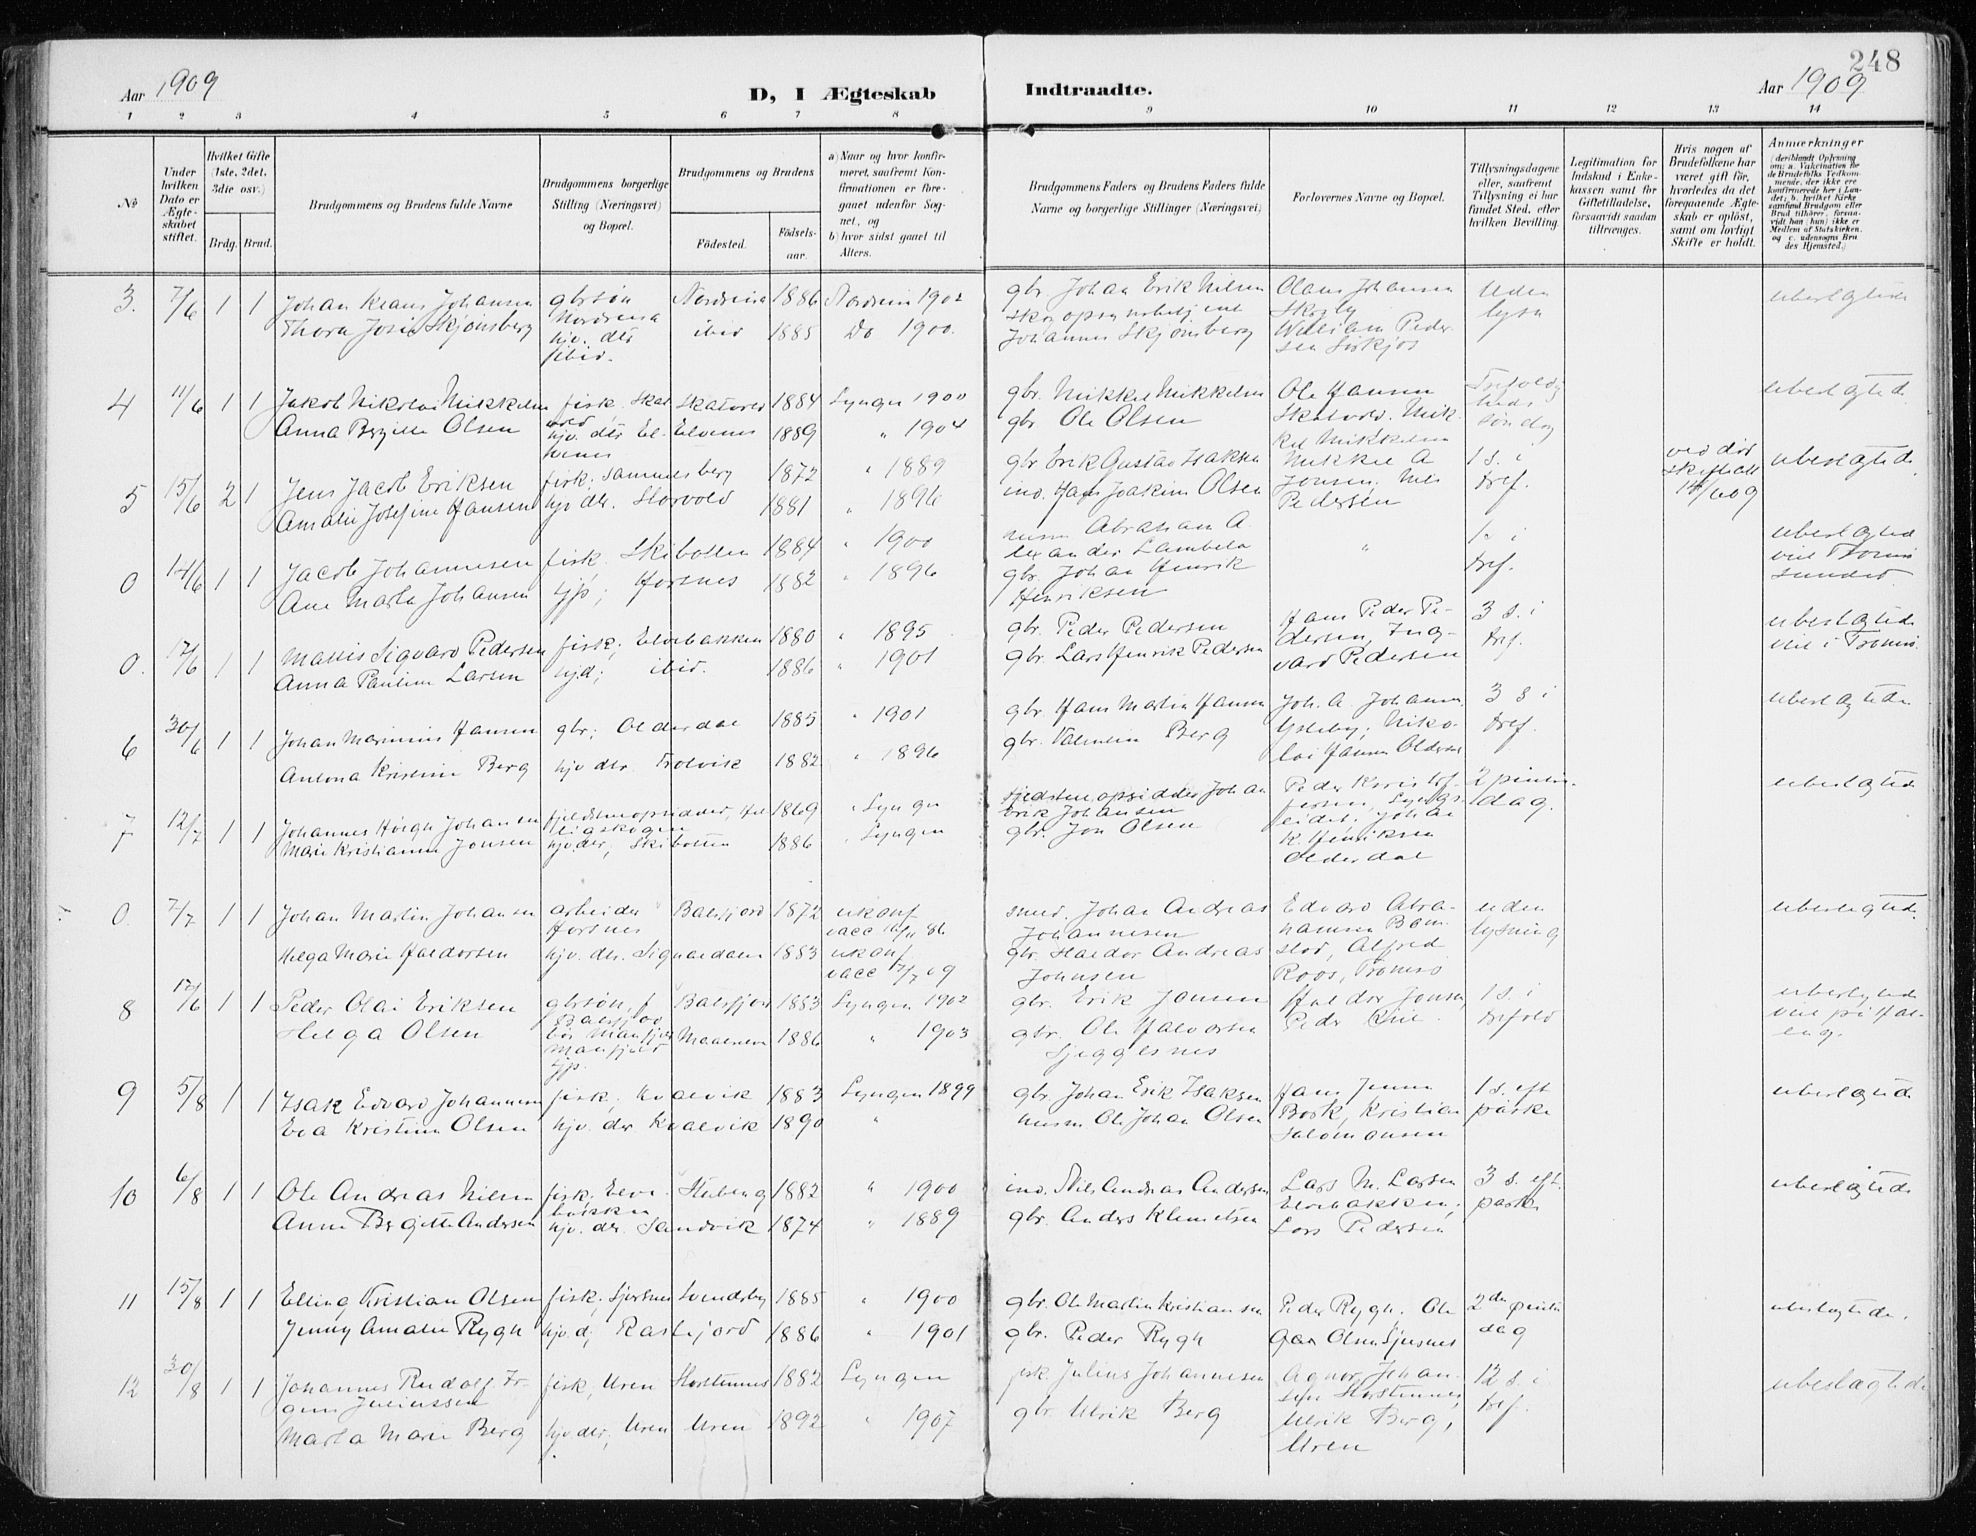 248
Aar 1909
D, I Ægteskab Indtraadte.
Aar 1909
1 2 3 4 5 6 7 8 9 10 11 12 13 14
No
Under hvilken Dato er Ægteskabet stiftet.
Hvilket Gifte (1ste, 2det, 3die osv.)
Brdg. Brud.
Brudgommens og Brudens fulde Navne
Brudgommens borgerlige Stilling (Næringsvei) og Bopæl.
Brudgommens og Brudens
Födested.
Födselsaar.
a) Naar og hvor konfirmeret, saafremt Konfirmationen er foregaaet udenfor Sognet, og
b) hvor sidst gaaet til Alters.
Brudgommens Faders og Brudens Faders fulde Navne og borgerlige Stillinger (Næringsvei)
Forlovernes Navne og Bopæl.
Tillysningsdagene eller, saafremt Tillysning ei har fundet Sted, efter hvilken Bevilling.
Legitimation for Indskud i Enkekassen samt for Giftetilladelse, forsaavidt saadan tiltrænges.
Hvis nogen af Brudefolkene har været gift för, hvorledes da det foregaaende Ægteskab er oplöst, samt om lovligt Skifte er holdt.
Anmærkninger
(deriblandt Oplysning om: a. Vakcination for de Brudefolks Vedkommende, der ikke ere konfirmerede her i Landet; b. hvilket Kirkesamfund Brudgom eller Brud tilhörer, forsaavidt han (hun) ikke er Medlem af Statskirken, og c. udensogns Brudes Hjemsted.)
3. 7/6 1 1 Johan Klaus Johansen gbrsön Nordreisa 1886 Nordreisa 1902 gbr Johan Erik Nilsen Olaus Johansen Uden ubeslægtede
Thora Josie Skjönsberg Nordreisa hjv. dtr ibid. ibid 1885 Do 1900. Johannes Skjönsberg Skogly lysn
4 11/6 1 1 Jakob Nikolai Mikkelsen fisk. Skatvold Skatvold 1884 Lyngen 1900 gbr. Mikkel Mikkelsen Ole Hansen ubeslægtede.
Anna Bergitte Olsen hjv. dtr Elvenes Elvenes 1889 " 1904 gbr Ole Olsen Skatvold. Mikkel Mikkelsen söndag
5 15/6 2 1 Jens Jacob Eriksen fisk; Sammuelsberg 1872 " 1889 gbr Erik Gustav Isaksen Mikkel A 1 s. i ved död ubeslægtede.
Amalie Josefine Hansen hjv dtr. Storvold 1881 " 1896 ind. Hans Joakim Olsen Jonsen, Pedersen tref.
0 14/6 1 1 Jacob Johannesen fisk. Skibotten 1884 " 1900 Abraham A. " 1. i ubeslægtede
Ane Marta Johansen Horsnes 1882 " 1896 gbr. Johan Henrik Henriksen tref.
0. 17/6 1 1 Sigvard Pedersen fisk; Elvebakken 1880 " 1895 gbr. Peder Pedersen Hans Peder Pedersen, 3 s. i ubeslægtede
Anna Pauline Larsen hjd; ibid. 1886 " 1901 gbr. Lars Henrik Pedersen Ingvard Pedersen tref. viet i Tromsö.
6 30/6 1 1 Johan Marinius Hansen gbr; Olderdal 1885 " 1901 gbr. Hans Martin Hansen Joh. A Johansen 3 s i ubeslægtede
Antona Kristine Berg hjv dtr. 1882 " 1896 gbr. Valentin Berg Nikolai Hansen Olderdal tref.
7 12/7 1 1 Johannes Höigh Johansen 1869 " Lyngen Erik Johansen 2 pintsedag. ubeslægtede
Marie Kristianne Jonsen hjv dtr, Skibotten 1886 " Lyngen gbr. Jon Olsen Johan K. Henriksen Olderdal
0. 7/7 1 1 Johan Martin Johansen arbeider Horsnes Balsfjord 1872 ukonf vacc smed. Johan Andreas Johannesen Edvard Abrahamsen uden lysning ubeslægtede.
Helga Marie Haldorsen hjv. dtr. Signaldalen 1883 ukonf, vacc gbr. Haldor Andreas Johnsen Alfred Roos, Tromsö
8 17/6 1 1 Peder Olai Eriksen gbrsön, Balsfjord 1883 Lyngen 1902 gbr. Erik Jonsen Haldor Jonsen, 1 s. i ubeslgtede
Helga Olsen 1886 " 1903 gbr. Ole Halvorsen Sjeggesnes Peder trefold
9 5/8 1 1 Isak Edvard Johannesen fisk; Kvalvik 1883 Lyngen 1899 gbr. Johan Erik Isaksen Hans Jensen 1 s. eft ubeslægtede
Eva Kristine Olsen hjv. dtr Kvalvik 1890 " husm Ole Johan Olsen Kristian Salomonsen paaske
10 6/8 1 1 Ole Andreas Nilsen fisk. Elvebakken 1882 " 1900 ind. Nils Andreas Andersen Lars M. Larsen 3 s. eft. ubeslægtede
Anne Bergitte Andersen hjv. dtr. Sandvik 1874 " 1889 gbr. Anders Klemetsen Elvebakken; Lars Pedersen paaske
11 15/8 1 1 Elling Kristian Olsen fisk. Svendsby 1885 " 1900 gbr. Ole Martin Kristiansen Peder Rygh. Ole 2den pintsedag ubeslægtede.
Jenny Amalie Rygh hjv. d; Rastefjord 1886 " 1901 gbr. Peder Rygh
12 30/8 1 1 Johannes Rudolf Juliussen fisk, Uren Storstennes 1882 Lyngen fisk. Julius Johannesen Agnar Johansen Storstennes, 12 s. i ubeslægtede
Marta Marie Berg hjv dtr, Uren Uren 1892 " 1907 gbr. Ulrik Berg Ulrik Berg, Uren tref.